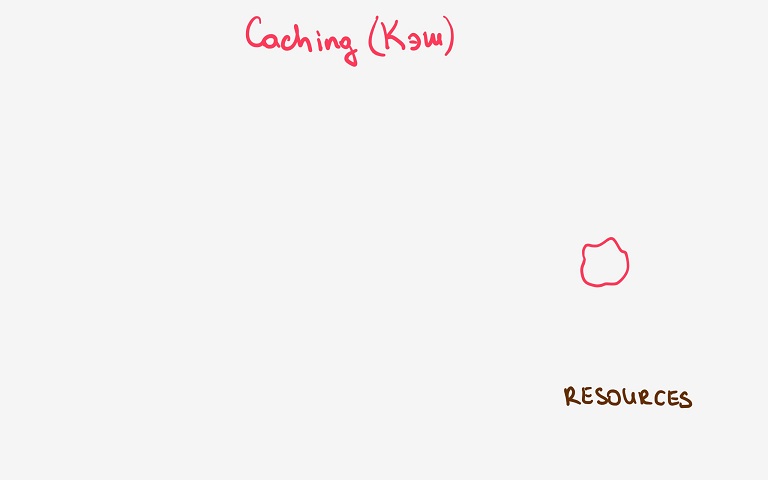 Caching (Кэш)
RESOURCES